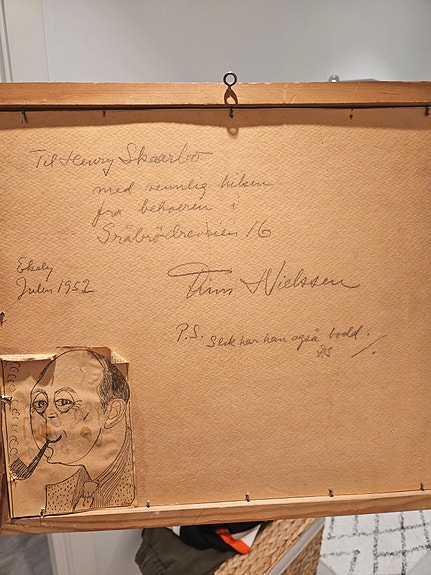 Til Henry Skaarbø
med vennlig hilsen
fra beboeren i
Gråbrødreveien 16
Ekely
Julen 1952
Nielssen
P.S. Slik har han også bodd.
DS